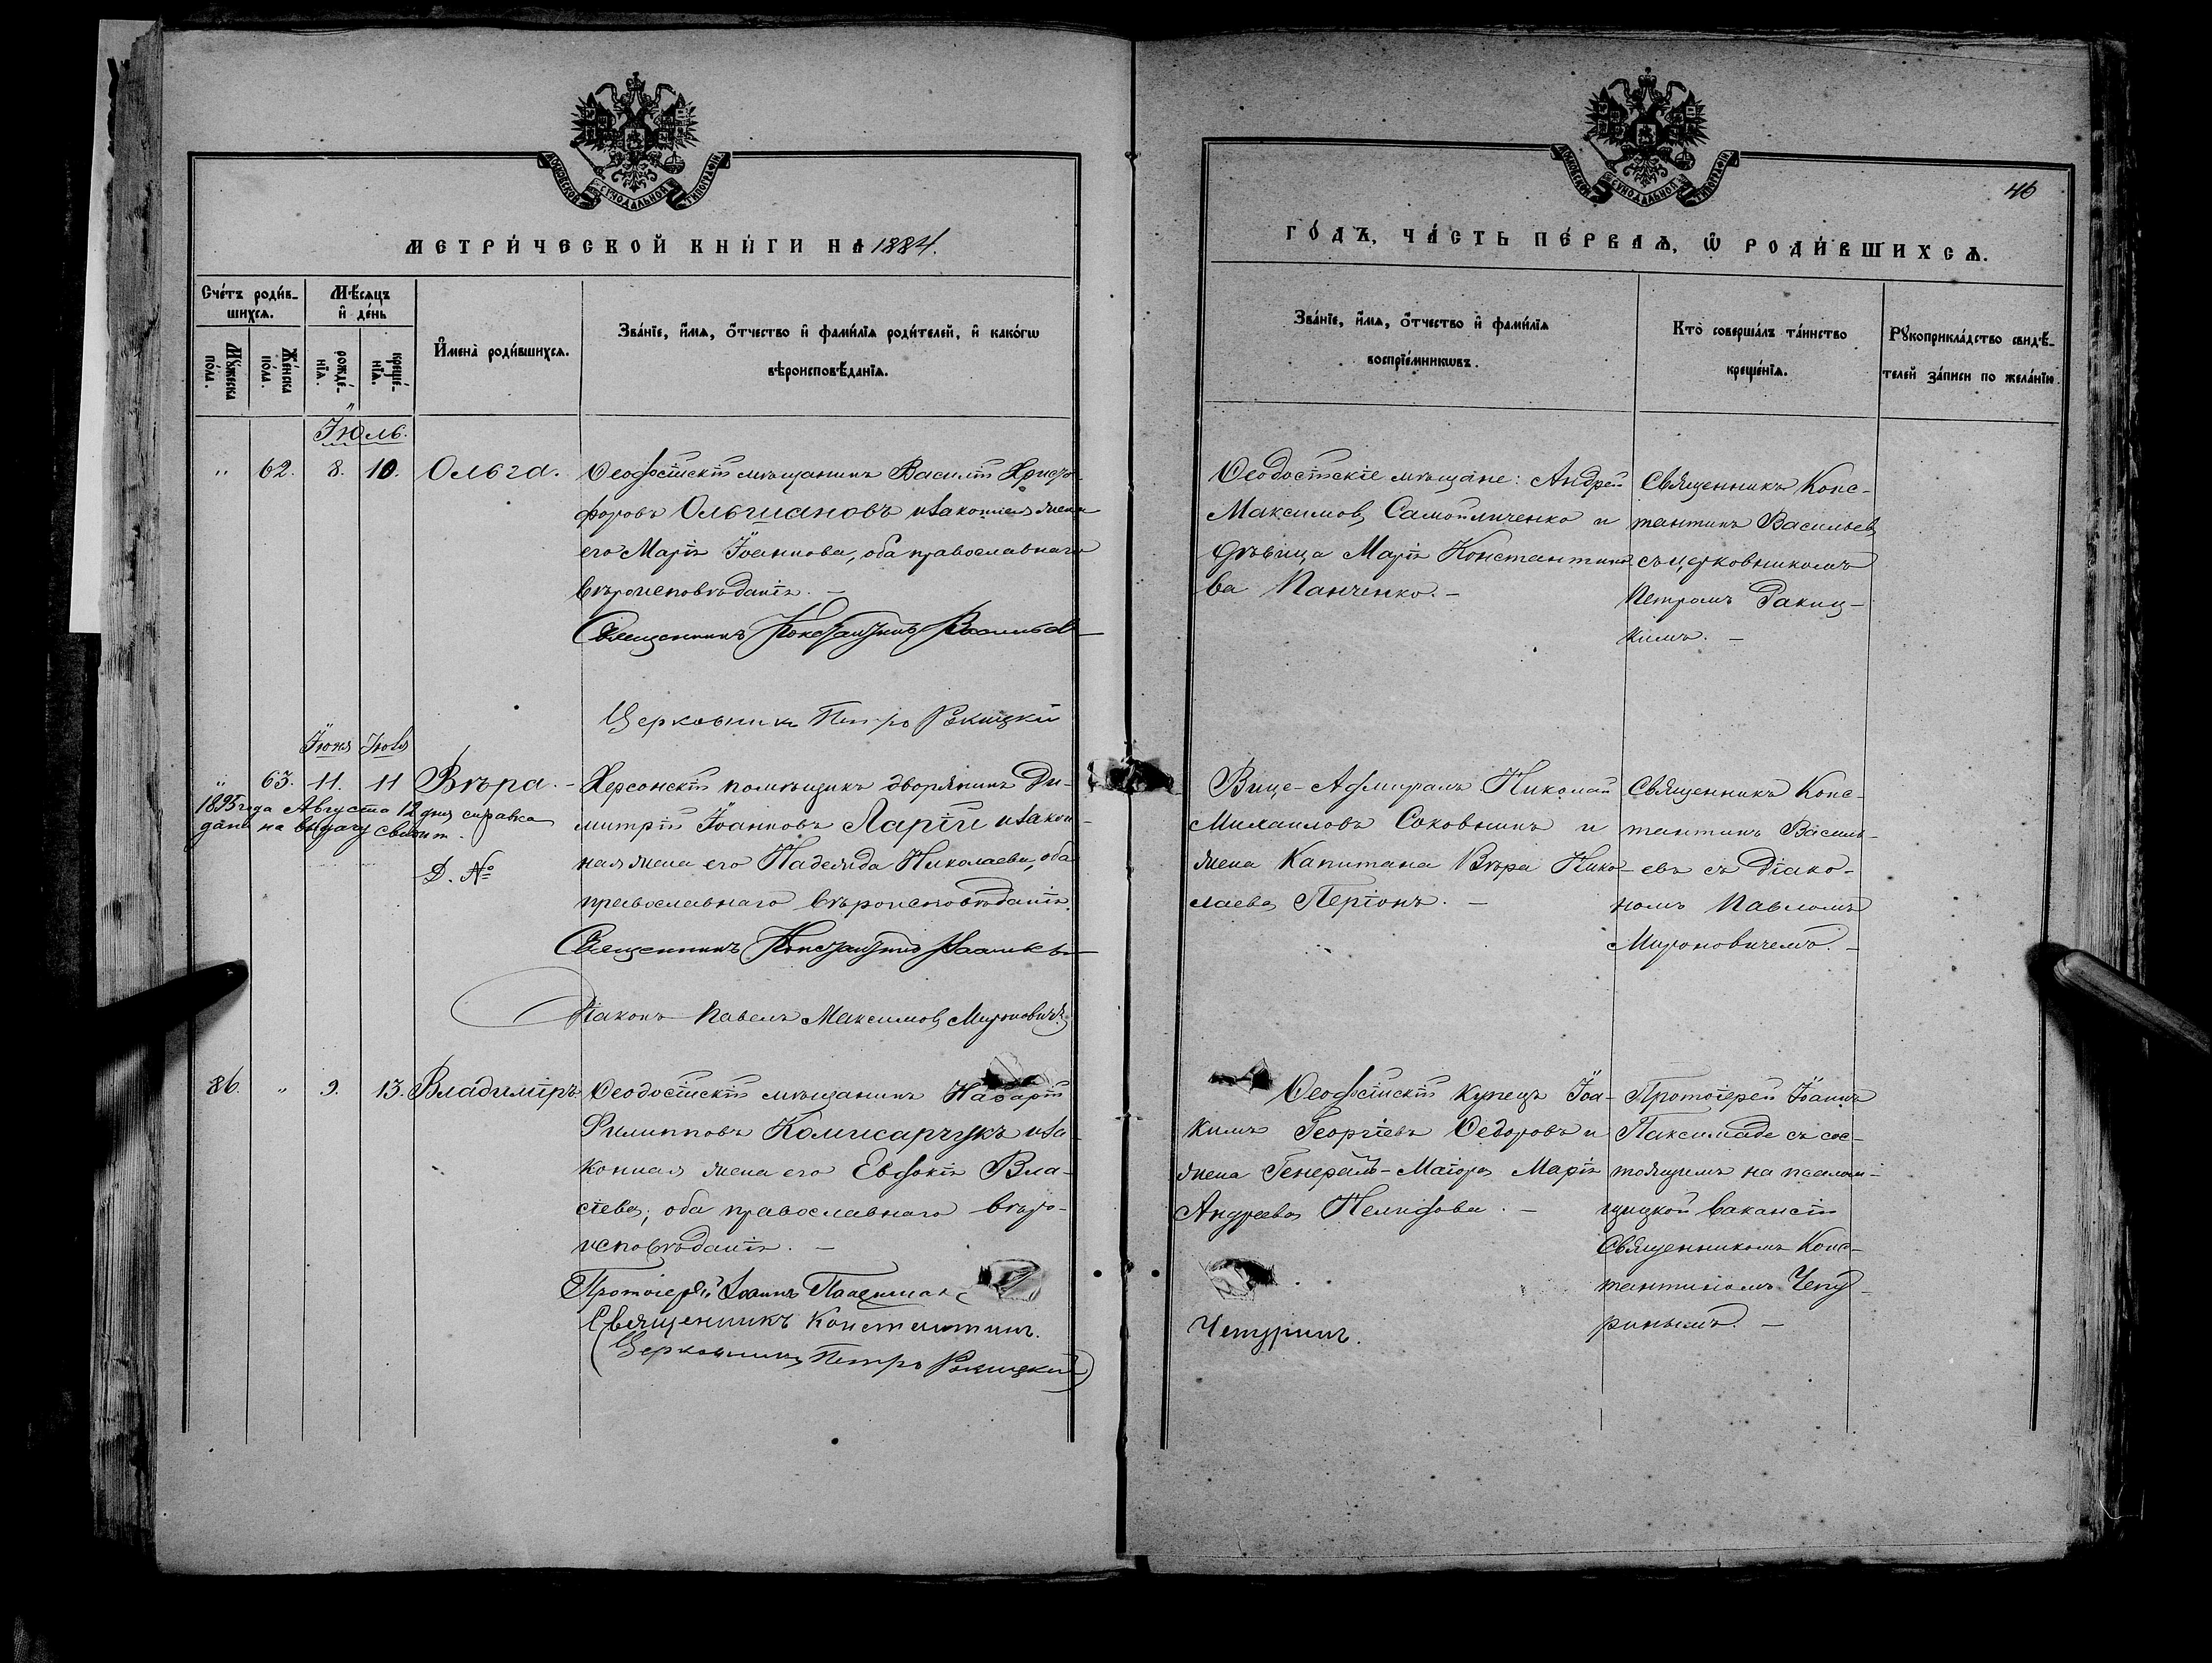 МОСКОВСКОЙ СѴНОДАЛЬНОЙ ТИПОГРАФІИ
МЕТРИ́ЧЕСКОЙ КНИ́ГИ НА 1884.
Сче́тъ роди́в-
шихсѧ.
Мѣ́сѧцъ
и҆ де́нь
И҆мена̀ роди́вшихсѧ.
Зва́нїе, и҆́мѧ, ѻ҆́тчество и҆ фами́лїѧ роди́телей, и҆ како́гѡ
вѣроисповѣ́данїѧ.
Мꙋ́жеска
по́ла.
Же́нска
по́ла.
рожде́-
нїѧ.
креще́-
нїѧ.
Іюль.
" 62. 8. 10. Ольга.
Ѳеодосійскій мѣщанинъ Василій Христо-
форовъ Ольшановъ и законная жена
его Марія Іоаннова, оба православнаго
вѣроисповѣданія. –
Священникъ Константинъ Васильев
Церковникъ Петръ Ракицкій
Іюня Іюля
" 63. 11. 11 Вѣра. –
1895 года Августа 12 дня справка
дана на выдачу свидѣт.
Д. №
Херсонскій помѣщикъ дворянинъ Ди-
митрій Іоанновъ Ларіи и закон-
ная жена его Надежда Николаева, оба
православнаго вѣроисповѣданія.
Священникъ Константинъ Васильев
Діаконъ Павелъ Максимовъ Мироновичъ
86. " 9. 13. Владиміръ.
Ѳеодосійскій мѣщанинъ Назарій
Филипповъ Комисарчукъ и за-
конная жена его Евдокія Вла-
сіева, оба православнаго вѣро-
исповѣданія. –
Протоіерей Іоаннъ
Священникъ Константинъ
(Церковникъ Петръ Ракицкій)
МОСКОВСКОЙ СѴНОДАЛЬНОЙ ТИПОГРАФІИ
46
ГО́ДЪ, ЧА́СТЬ ПЕ́РВАѦ, Ѡ҆ РОДИ́ВШИХСѦ.
Зва́нїе, и҆́мѧ, ѻ҆́тчество и҆ фами́лїѧ
воспрїе́мникѡвъ.
Кто̀ соверша́лъ та́инство
креще́нїѧ.
Рꙋкоприкла́дство свидѣ́-
телей за́писи по жела́нїю.
Ѳеодосійскіе мѣщане: Андрей
Максимовъ Самойличенко и
дѣвица Марія Константино-
ва Панченко. –
Священникъ Конс-
тантинъ Васильевъ
съ церковникомъ
Петромъ Ракиц-
кимъ. –
Вице-Адмиралъ Николай
Михаиловъ Соковнинъ и
жена Капитана Вѣра Нико-
лаева Перiонъ. –
Священникъ Конс-
тантинъ Василь-
евъ съ Діако-
номъ Павломъ
Мироновичемъ. –
Ѳеодосійскій купецъ Іоа-
кимъ Георгіевъ Ѳедоровъ и
жена Генералъ-Маіора Марія
Андреева Нелидова. –
Чепуринъ.
Протоіерей Іоаннъ
Паксимаде съ сос-
тоящимъ на псалом-
щицкой вакансіи
Священникомъ Конс-
тантиномъ Чепу-
ринымъ. –